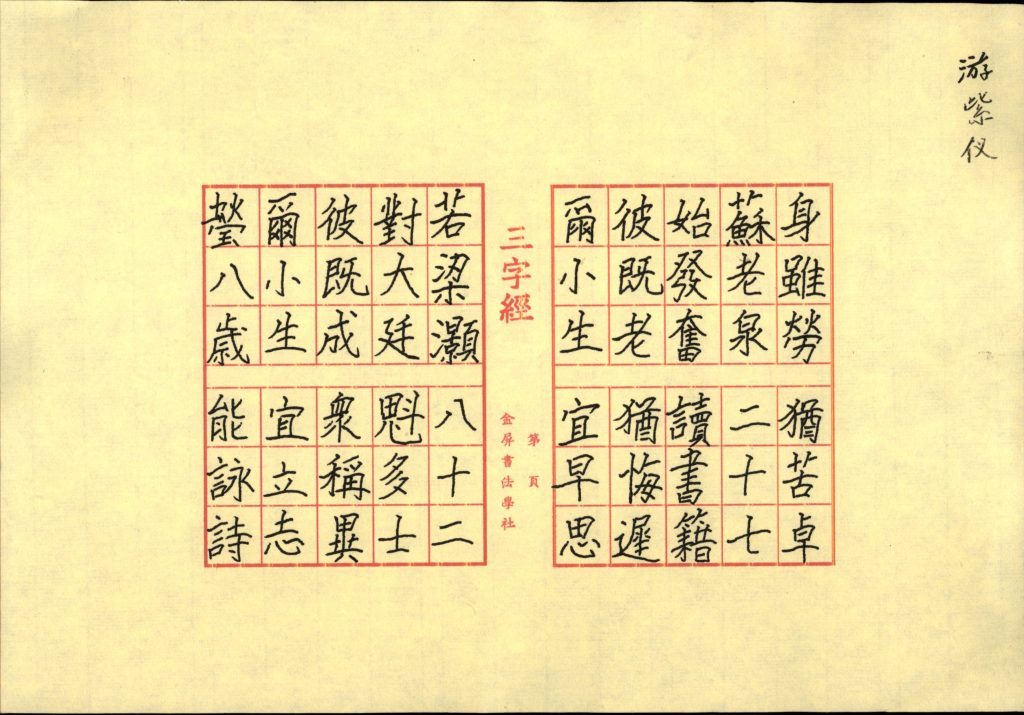 游紫仪
身雖勞 猶苦卓
蘇老泉 二十七
始發奮 讀書籍
彼既老 猶悔遲
爾小生 宜早思
三字經
第 頁
金屏書法學社
若梁灝 八十二
對大廷 魁多士
彼既成 衆稱異
爾小生 宜立志
瑩八歲 能詠詩